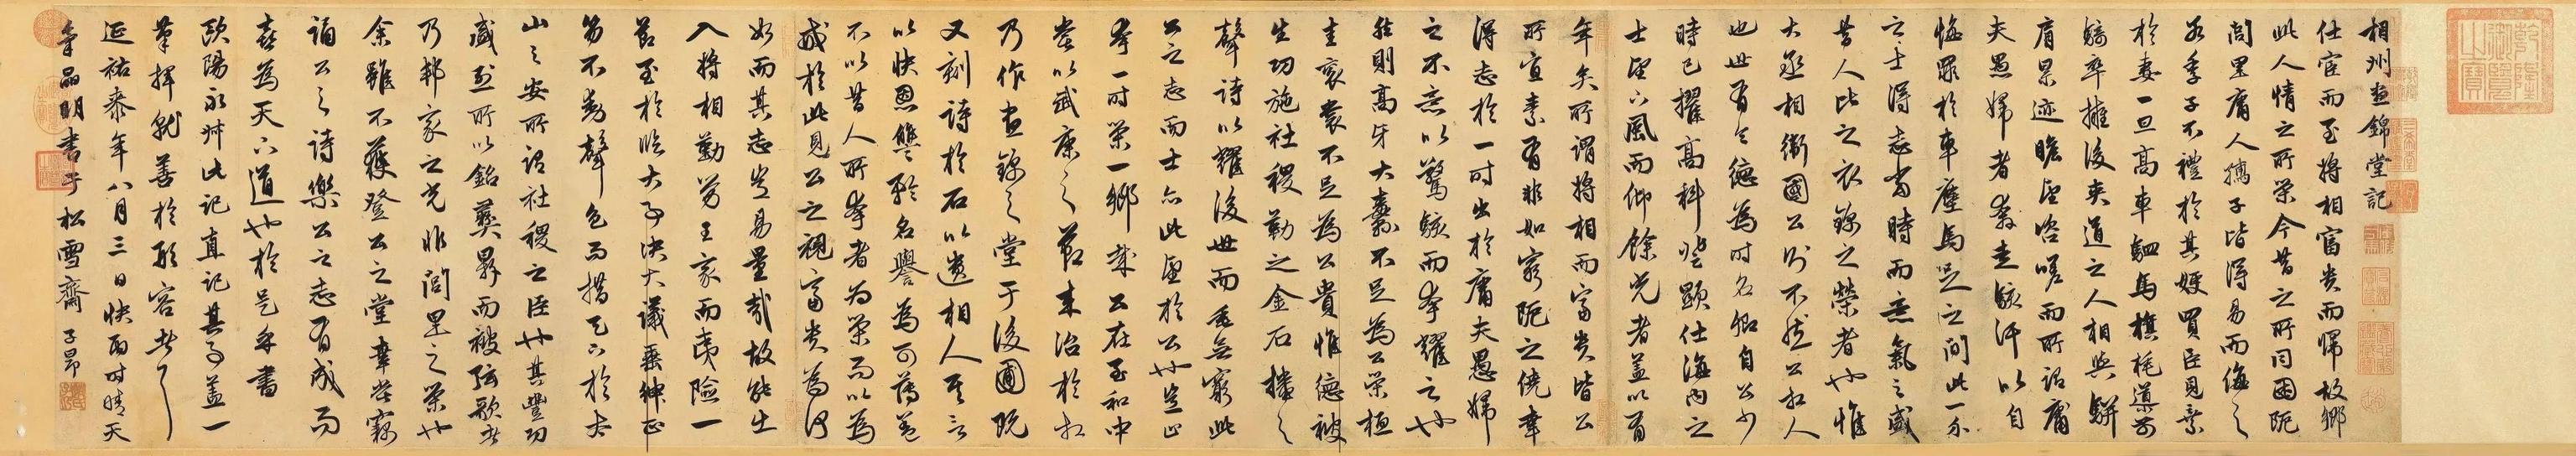 相州晝錦堂記
仕宦而至將相富貴而歸故鄉
此人情之所榮今昔之所同困阨
閭里庸人孺子皆得易而侮之
若季子不禮於其嫂買臣見棄
於妻一旦高車駟馬旗旄導前
騎卒擁後夾道之人相與駢
肩累迹瞻望咨嗟而所謂庸
夫愚婦者奔走駭汗以自
悔罪於車塵馬足之間此一介
之士得志當時而意氣之盛
昔人比之衣錦之榮者也惟
大丞相衛國公則不然公相人
也世有令德為時名卿自公少
時已擢高科登顯仕海內之
士望下風而仰餘光者蓋以有
年矣所謂將相而富貴皆公
所宜素有非如窮阨之僥幸
得志於一時出於庸夫愚婦
之不意以驚駭而夸耀之也
然則高牙大纛不足為公榮桓
圭袞裳不足為公貴惟德被
生功施社稷勒之金石播之
聲詩以耀後世而垂無窮此
公之志而士亦此望於公也豈止
夸一時榮一鄉哉公在至和中
嘗以武康之節來治於相
乃作晝錦之堂于後圃既
又刻詩於石以遺相人其言
以快恩讎矜名譽為可薄蓋
不以昔人所夸者為榮而以為
戒於此見公之視富貴為何
如而其志豈易量哉故能出
入將相勤勞王家而夷險一
節至於臨大事決大議垂紳正
笏不動聲色而措天下於太
山之安所謂社稷之臣也其豐功
盛烈所以銘彝鼎而被弦歌者
乃邦家之光非閭里之榮也
余雖不獲登公之堂幸嘗竊
誦公之詩樂公之志有成而
喜為天下道也於是乎書
歐陽永叔此記真記其事蓋一
筆揮就善於形容者
延祐泰年八月三日快雨時晴天
氣晶明書于松雪齋 子昂
乾隆御覽之寶